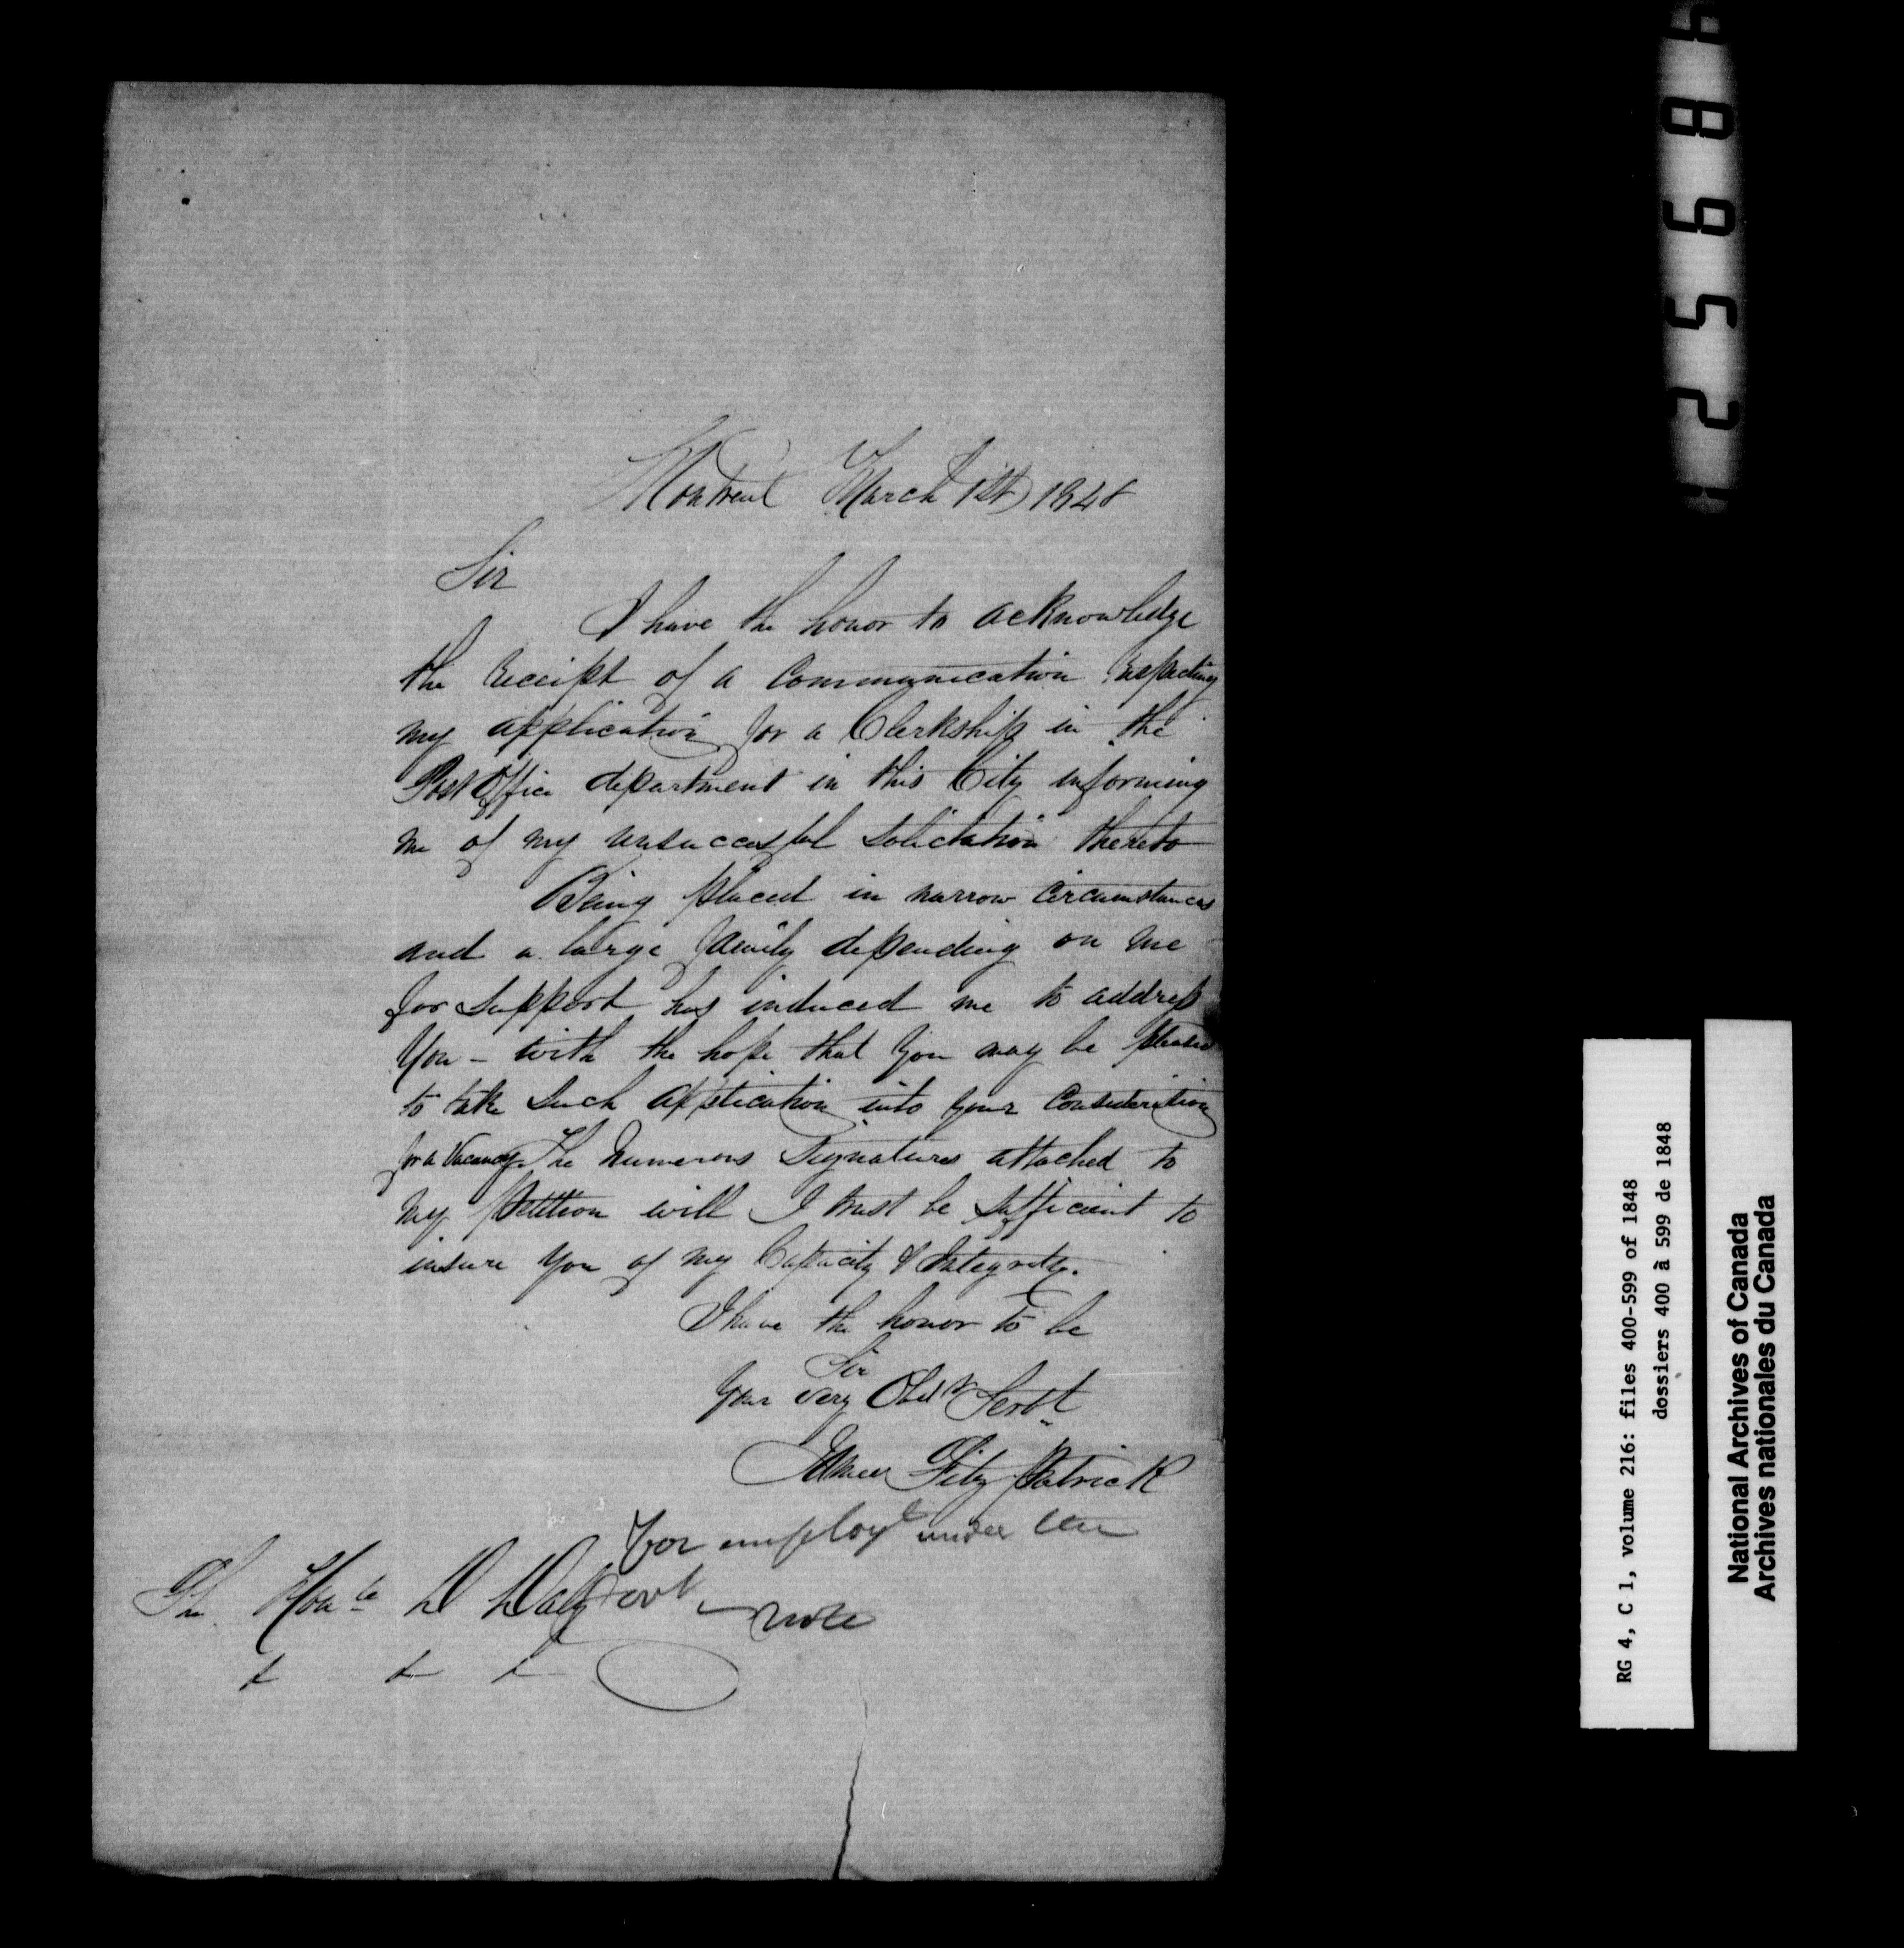 Montreal March 1st 1848
Sir
I have the honor to acknowledge
the receipt of a Communication respecting
my application for a Clerkship in the
Post Office department in this City informing
me of my unsuccessful Solicitation thereto
Being placed in narrow Circumstances
and a large family depending on me
for Support has induced me to address
You - with the hope that you may be pleased
to take Such application into your Consideration
for a Vacancy. The Numerous Signatures attached to
my Petition will I trust be Sufficient to
insure You of my Capacity & Integrity.
I have the honor to be
Sir
Your very Obdt Servt
James Fitz Patrick
For employt under the
Govt
The Honble D Daly
note
& & &
2 5 6 8
RG 4, C 1, volume 216: files 400-599 of 1848
dossiers 400 à 599 de 1848
National Archives of Canada
Archives nationales du Canada